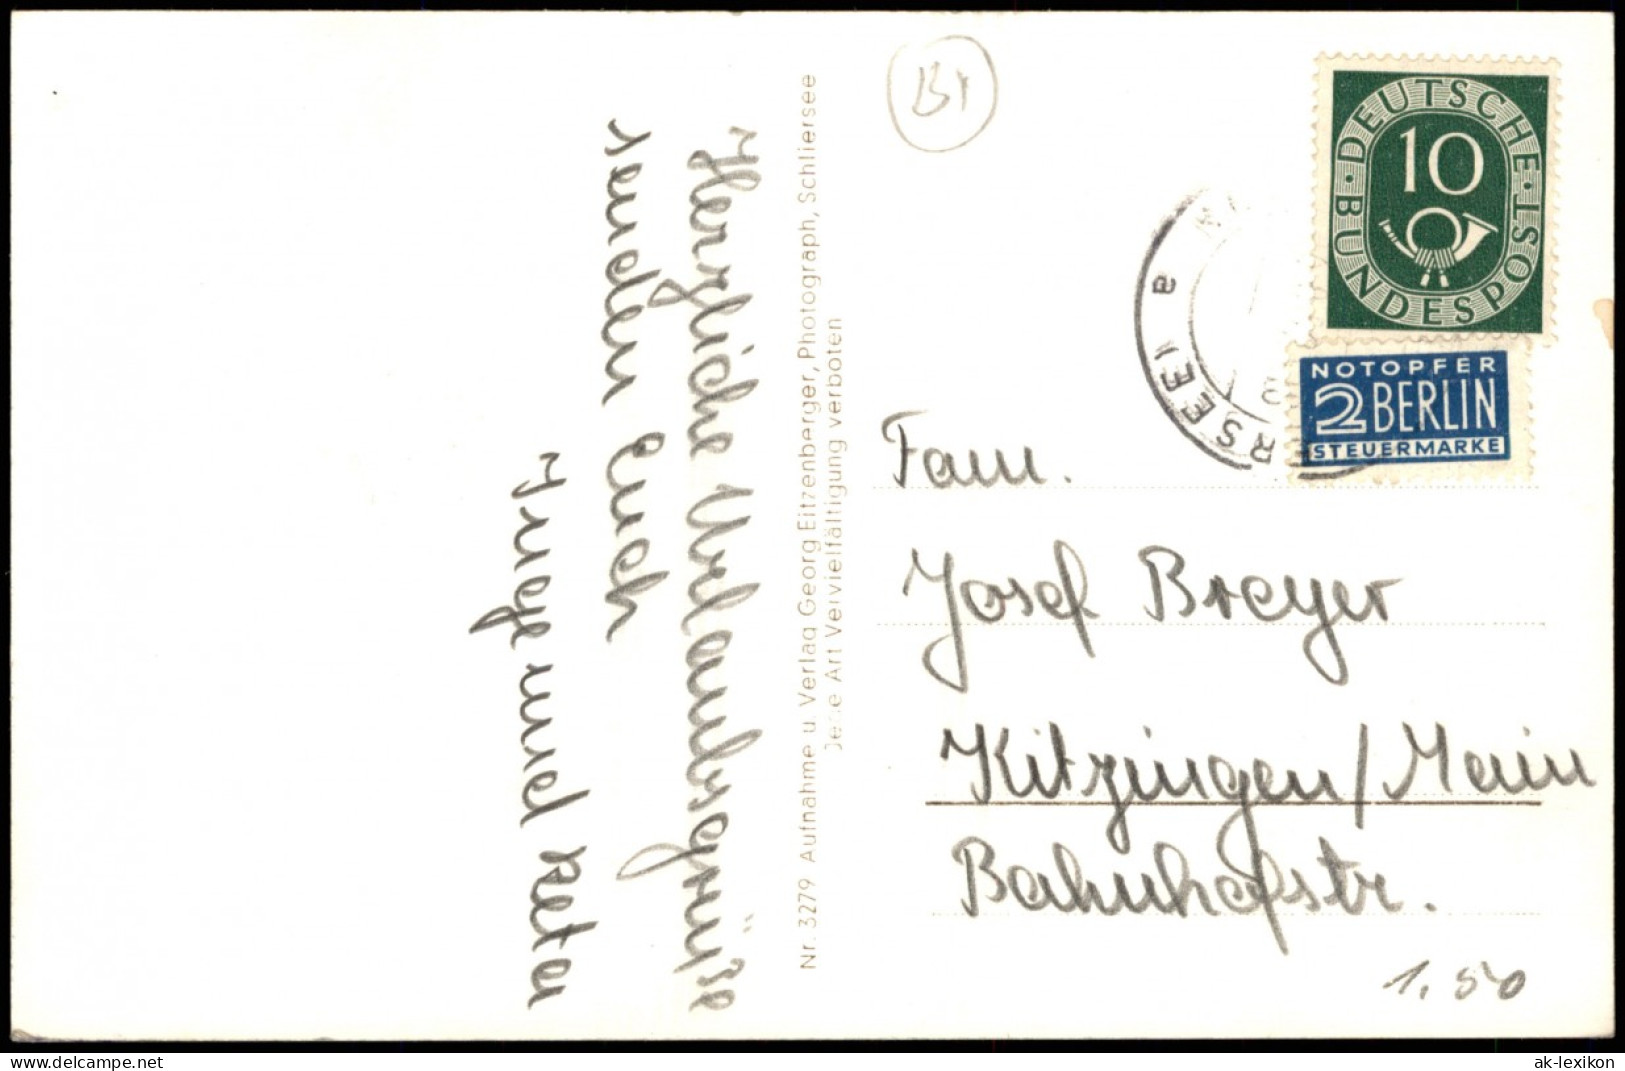 Herzliche Urlaubsgrüße
senden Euch
Inge und Reta
Nr. 3279 Aufnahme u. Verlag Georg Eitzenberger, Photograph, Schliersee
Jede Art Vervielfältigung verboten
BUNDESPOST · DEUTSCHE
10
NOTOPFER
2 BERLIN
STEUERMARKE
a
Fam.
Josef Breyer
Kitzingen/Main
Bahnhofstr.
1.50
ak-lexikon.com
ak-lexikon